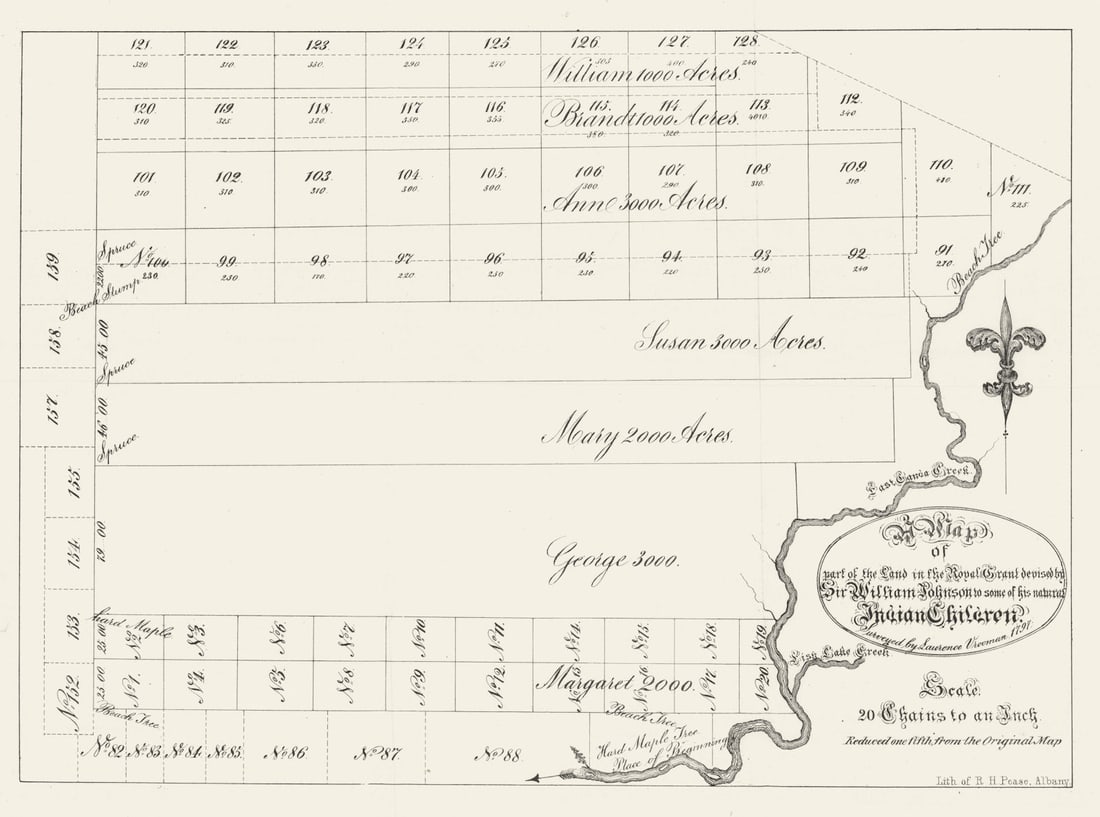 121. 122. 123. 124 125 126. 127. 128.
320 310. 330. 290. 270 303 400. 240
William 1000 Acres.
120. 119. 118. 117 116. 115. 114. 113. 112.
310 325. 320. 330. 333 4010. 340
Brandt 1000 Acres.
380. 320.
101 102. 103. 104. 105. 106. 107. 108 109. 110. No. 111.
310 310. 310. 300. 300. 300. 290. 310. 310 410. 225.
Ann 3000 Acres.
159 Spruce
2200
No. 100 99. 98. 97 96. 95. 94. 93 92. 91
230. 230 170. 220 230 230 220 230. 240 270.
Beach Tree
Beach Stump
158. 45 00
Susan 3000 Acres.
Spruce
157. 46 00
Mary 2000 Acres.
Spruce
155.
East Canda Creek.
154. 79 00
George 3000.
A Map
of
part of the Land in the Royal Grant devised by
Sir William Johnson to some of his natural
Indian Children.
Surveyed by Laurence Vrooman 1797.
153. 25 00 Hard Maple
No. 2. No. 3. No. 6 No. 7 No. 10 No. 11. No. 14. No. 15. No. 18. No. 19.
Fish Lake Creek
No. 152 25 00
No. 1. No. 4. No. 5. No. 8 No. 9. No. 12. No. 13 No. 16 No. 17. No. 20.
Margaret 2000.
Beach Tree
Beach Tree
Hard Maple Tree
Place of Beginning
No. 82 No. 83 No. 84 No. 85. No. 86. No. 87. No. 88.
Scale.
20 Chains to an Inch.
Reduced one fifth, from the Original Map
Lith of R. H. Pease, Albany.